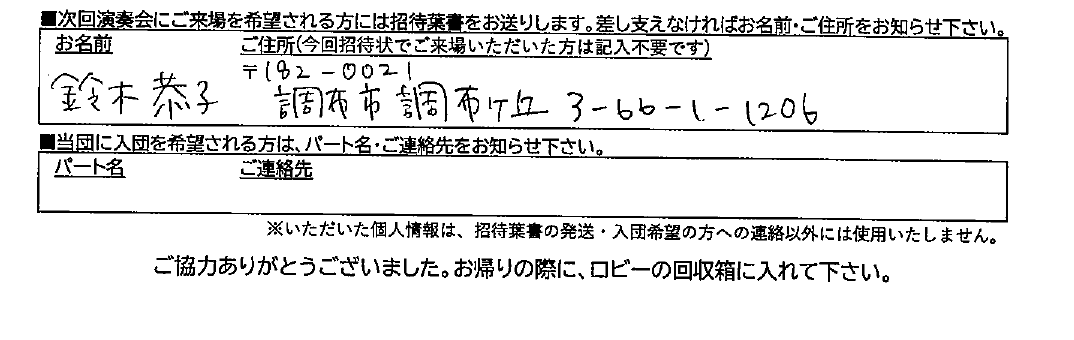 ■次回演奏会にご来場を希望される方には招待葉書をお送りします。差し支えなければお名前・ご住所をお知らせ下さい。
お名前 ご住所(今回招待状でご来場いただいた方は記入不要です)
〒182-0021
鈴木恭子 調布市調布ケ丘 3-66-1-1206
■当団に入団を希望される方は、パート名・ご連絡先をお知らせ下さい。
パート名 ご連絡先
※いただいた個人情報は、招待葉書の発送・入団希望の方への連絡以外には使用いたしません。
ご協力ありがとうございました。お帰りの際に、ロビーの回収箱に入れて下さい。